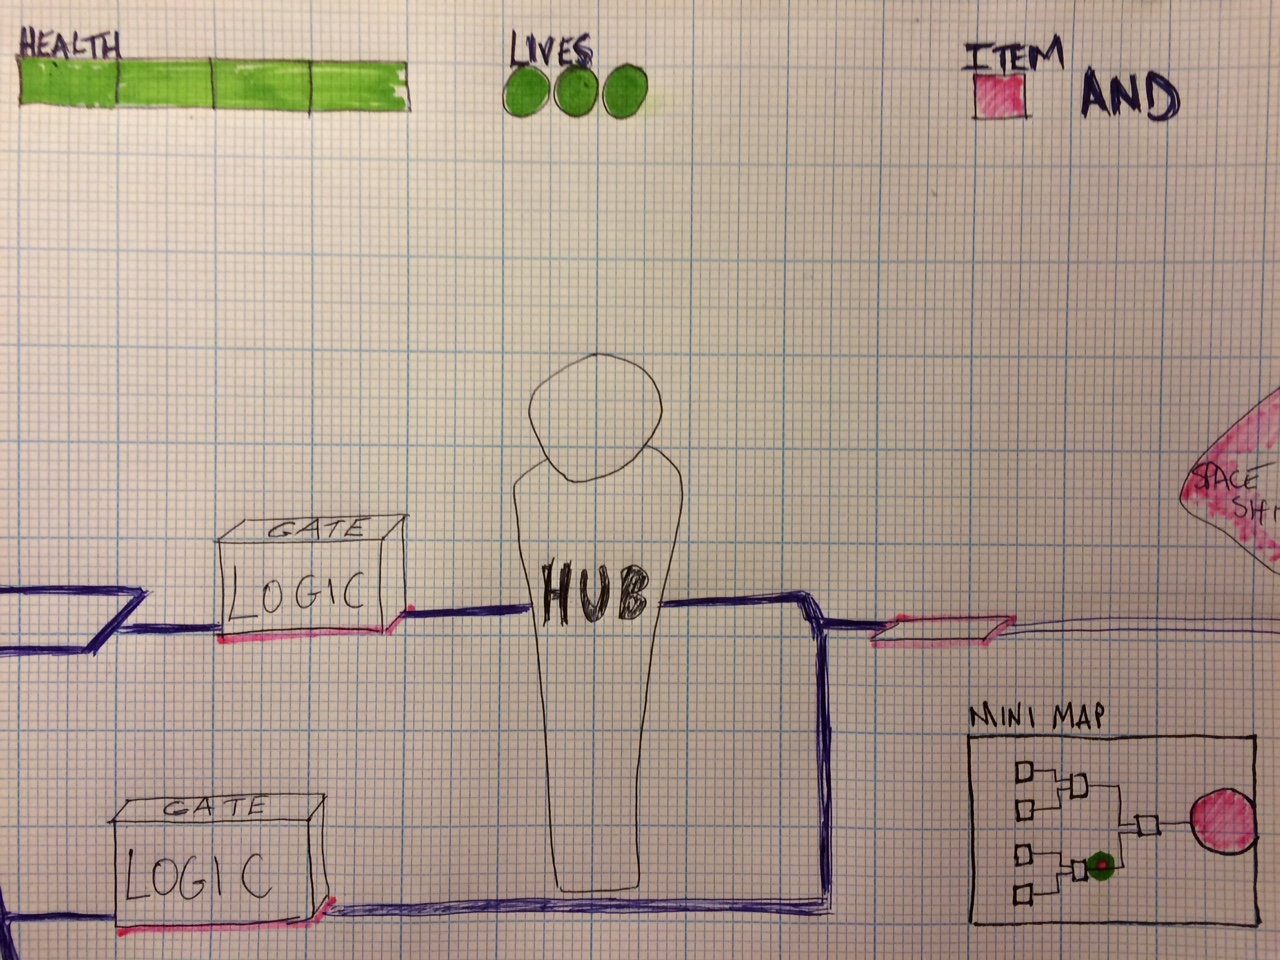 HEALTH
LIVES
ITEM
AND
SPACE
GATE
LOGIC
HUB
MINI MAP
GATE
LOGIC